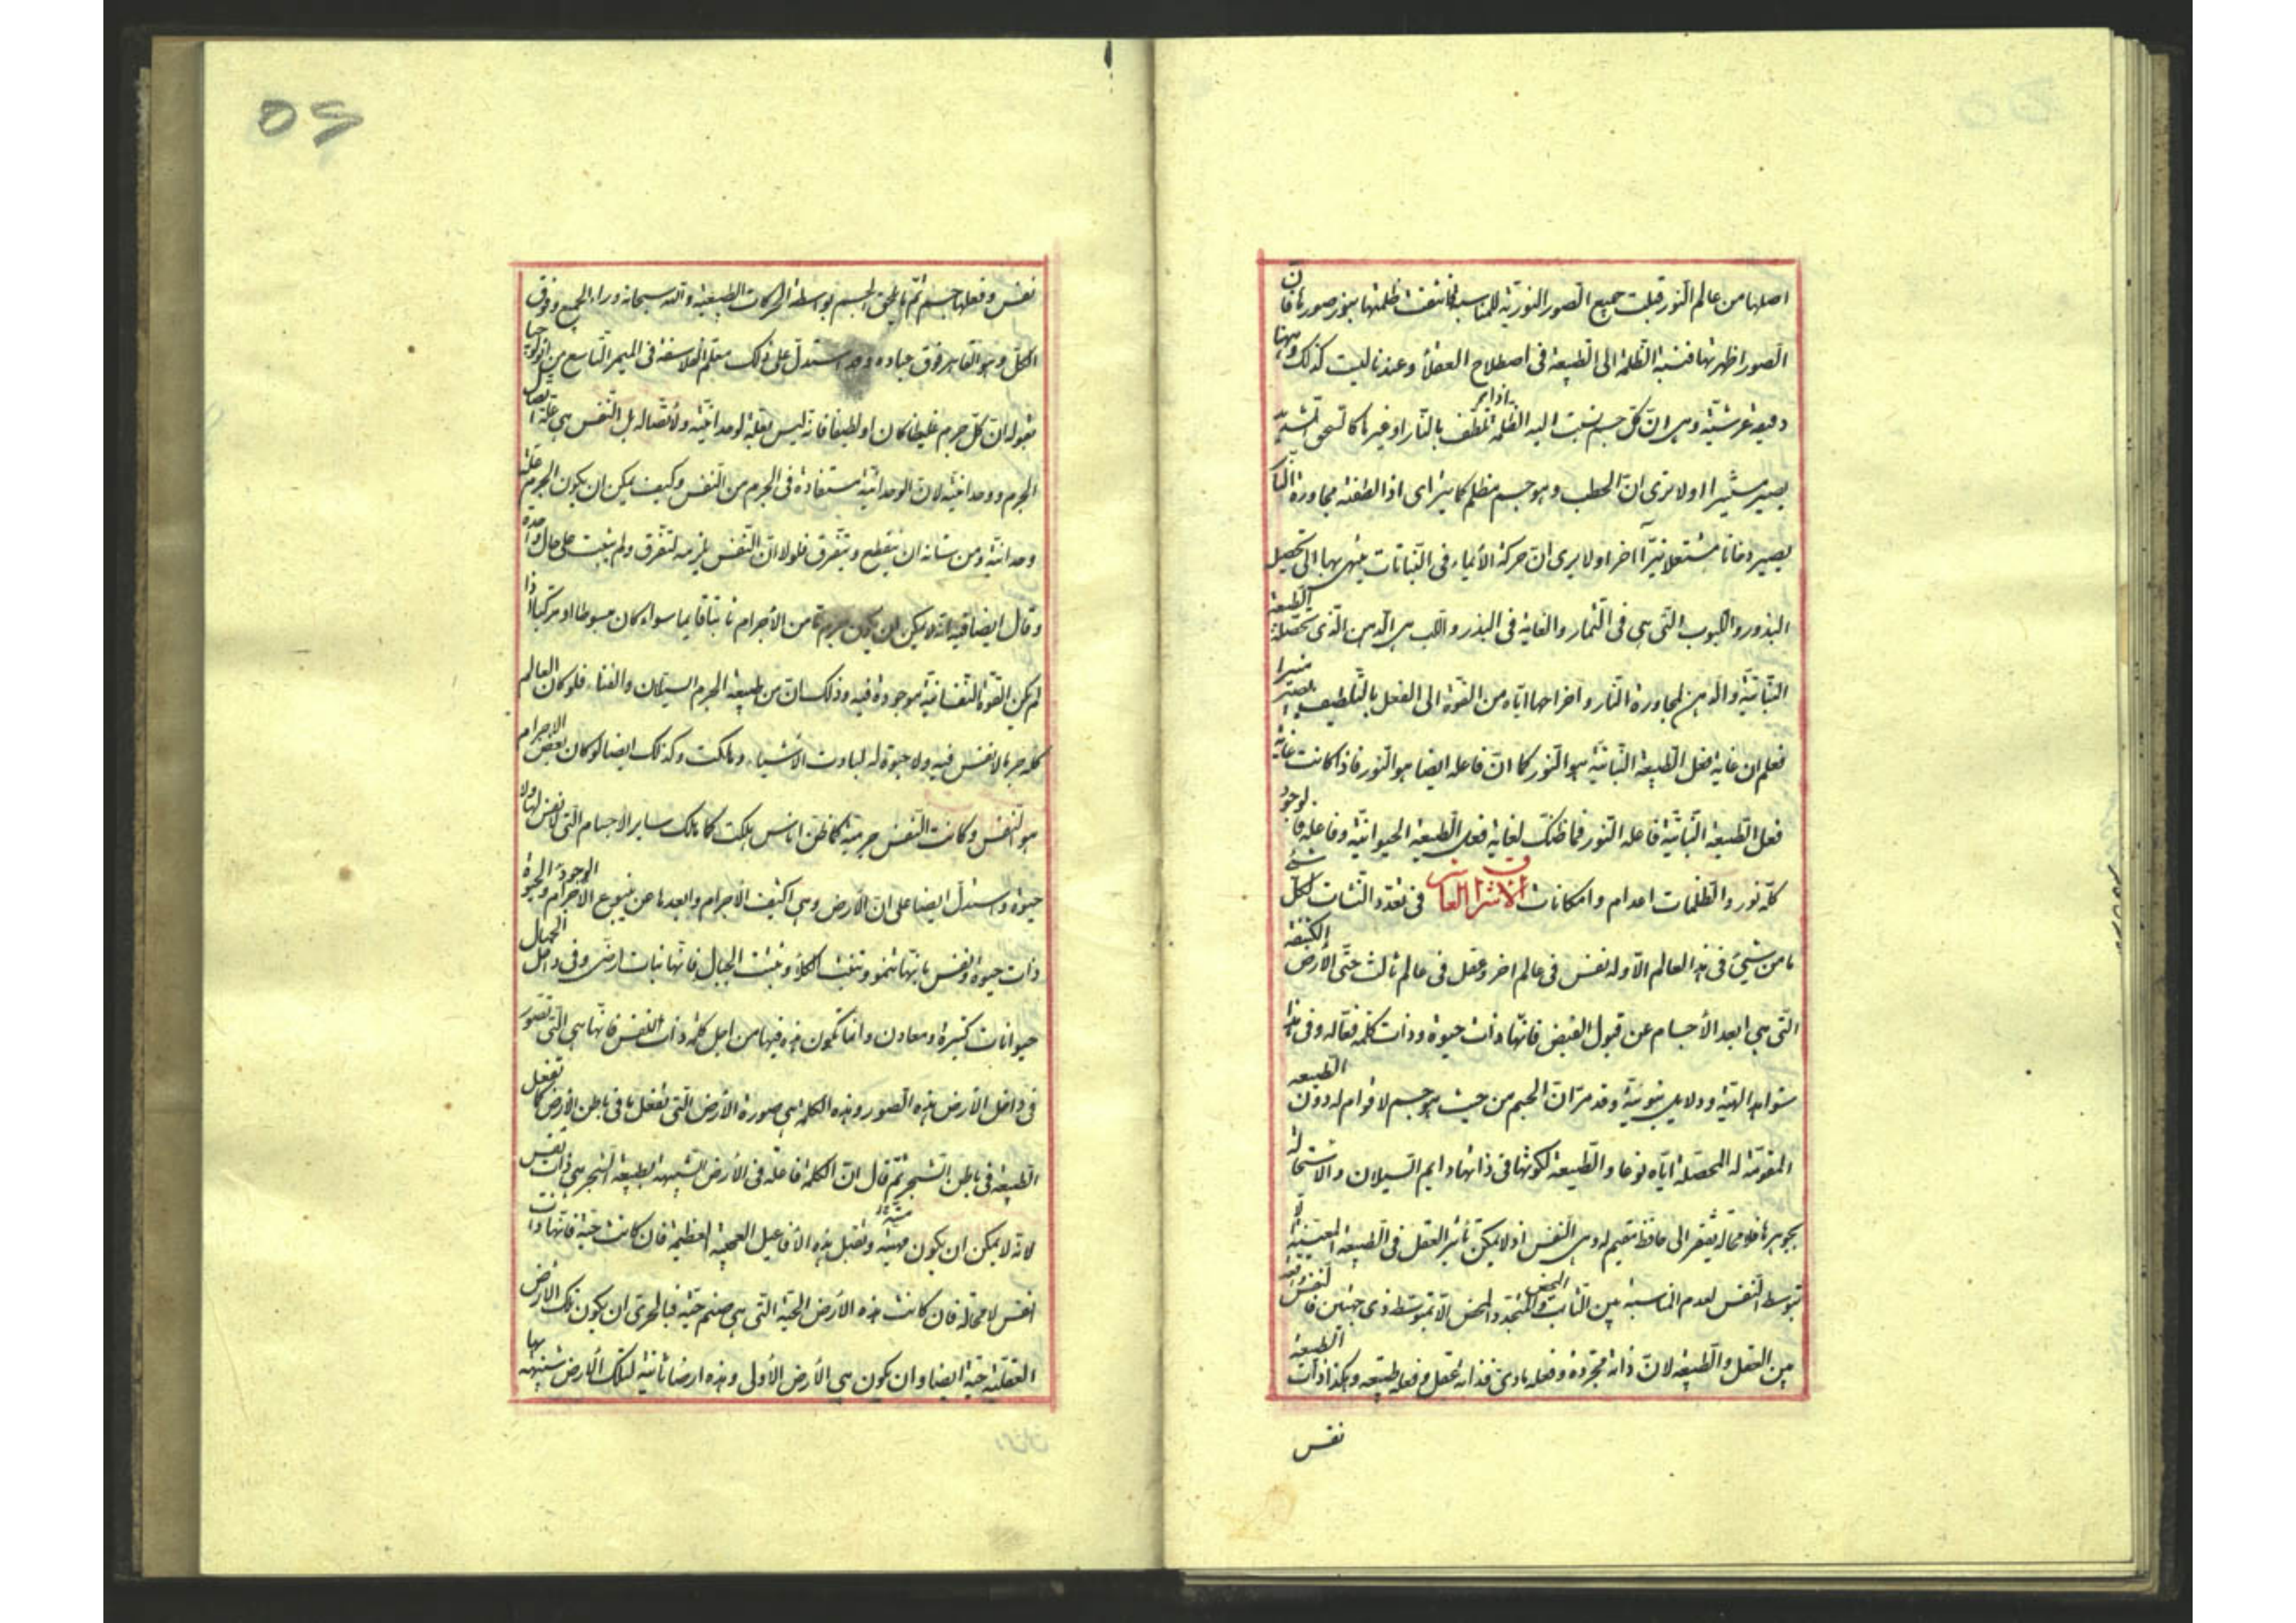 اصلها من عالم النور قبلت جميع الصور النورية للمناسبة فانتفت ظلمتها بنور صورها فان
الصور اظهرتها فنسبة الظلمة الى الطبيعة في اصطلاح العقلاء وعندنا ليست كذلك وههنا
دقيقة عرشية وهي ان كل جسم نسبت اليه الظلمة اذا تلطف بالنار او غيرها كالتسخن الشديد
يصير مستنيرا اولا ترى ان الحطب وهو جسم مظلم كما يترا اى اذا لطفته مجاورة النار
يصير دخانا مشتعلا نيرا اخر اولا يرى ان حركة الأنماء في النباتات ينتهى بها الى تحصيل
البذور والحبوب التي هي في الثمار والغاية في البذر واللب هي الدهن الذي تحصله الطبيعة
النباتية والدهن لمجاورة النار واخراجها اياه من القوة الى الفعل بالتلطيف يصير منيرا
فعلم ان غاية فعل الطبيعة النباتية هو النور كما ان فاعله ايضا هو النور فاذا كانت غاية
فعل الطبيعة النباتية فاعله النور فما ظنك لغاية فعل الطبيعة الحيوانية وفاعله فالوجود
كله نور والظلمات اعدام وامكانات الاشراق العاشر في تعدد النشآت لكل شئ
ما من شئ في هذا العالم الا وله نفس في عالم اخر وعقل في عالم ثالث حتى الأرض الكثيفة
التي هي ابعد الأجسام عن قبول الفيض فانها ذات حيوة وذات كلمة فعاله وفي هذا
شواهد الهية ودلايل نبوية وقد مر ان الجسم من حيث هو جسم لا قوام له دون الطبيعه
المقومة له المحصلة اياه نوعا والطبيعة لكونها في ذاتها دايم السيلان والاستحالة
بجوهرها فلا محالة يفتقر الى حافظ مقيم له وهي النفس اذ لا يمكن تأثير العقل في الطبيعة المعينة الا
بتوسط النفس لعدم المناسبة بين الثابت المحض والمتجدد المحض الا بمتوسط ذى جهتين فالنفس واقعة
بين العقل والطبيعة لان ذاته مجردة وفعله مادى فذاته عقل وفعله طبيعه وهكذا ذات الطبيعة
نفس
نفس وفعلها جسم ثم ما يلحق الجسم بواسطة الحركات الطبيعية والله سبحانه وراء الجميع وفوق
الكل وهو القاهر فوق عباده وقد استدل على ذلك معلم الفلاسفة في الميمر التاسع من اثولوجيا
بقوله ان كل جرم غليظا كان او لطيفا فانه ليس بعلة لوحدانيته ولا تصاله بل النفس هي علة اتصال
الجرم ووحدانيته لان الوحدانية مستفادة في الجرم من النفس وكيف يمكن ان يكون الجرم علة
وحدانيته ومن شانه ان يتقطع ويتفرق فلولا ان النفس يلزمه لتفرق ولم يثبت على حال واحدة
وقال ايضا فيه انه لا يمكن ان يكون جرم ما من الأجرام ثابتا قايما سواء كان مبسوطا او مركبا اذا
لم يكن القوة النفسانية موجودة فيه وذلك ان من طبيعة الجرم السيلان والفناء فلو كان العالم
كله جرما لا نفس فيه ولا حيوة له لبادت الأشياء وهلكت وكذلك ايضا لو كان بعض الاجرام
هو النفس وكانت النفس جرمية كما ظن اناس هلكت كما هلك ساير الاجسام التي لا نفس لها ولا
حيوة واستدل ايضا على ان الأرض وهي اكثف الأجرام وابعدها من ينبوع الوجود والحيوة
ذات حيوة ونفس بانها تنمو وتنبت الكلأ وتنبت الجبال فانها نبات ارضى وفي داخل الجبال
حيوانات كثيرة ومعادن وانما تكون هذه فيها من اجل كلمة ذات النفس فانها هي التي تصور
في داخل الأرض هذه الصور وهذه الكلمة هي صورة الأرض التي تفعل ما في باطن الأرض كما تفعل
الطبيعة في باطن الشجر ثم قال ان الكلمة فاعلة في الأرض الشبيهة بطبيعة الشجر هي ذات نفس
لانه لا يمكن ان يكون ميته وتفعل هذه الأفاعيل العجيبة العظيمة فان كانت حية فانها ذات
انفس لا محالة فان كانت هذه الأرض الحية التي هي صنم حية فبالحرى ان يكون تلك الأرض
العقلية حية ايضا وان يكون هي الأرض الأولى وهذه ارضا ثانية لتلك الأرض شبيهة بها